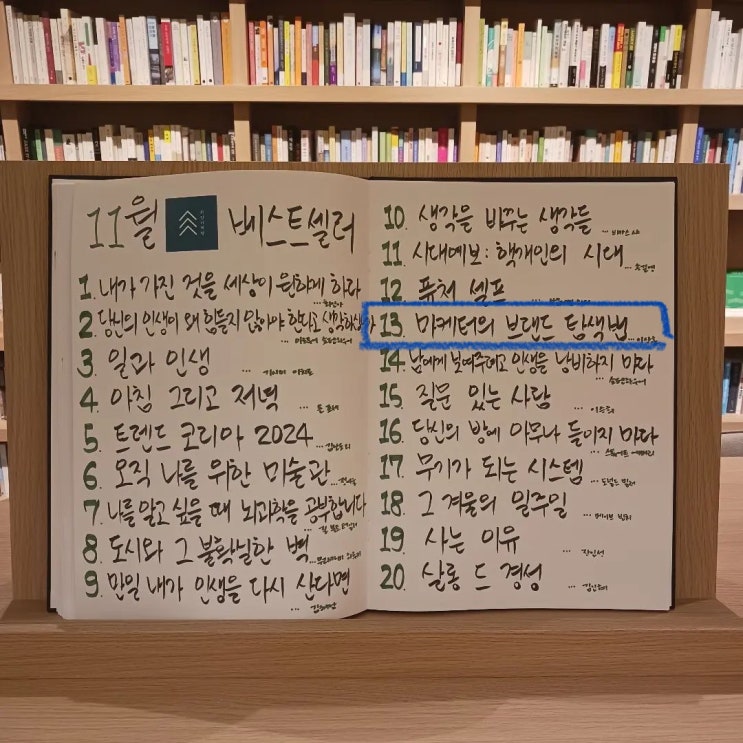 11월 베스트셀러
1. 내가 가진 것을 세상이 원하게 하라
... 최인아
2. 당신의 인생이 왜 힘들지 않아야 한다고 생각하십니까
... 쇼펜하우어
3. 일과 인생
... 기시미 이치로
4. 아침 그리고 저녁
... 욘 포세
5. 트렌드 코리아 2024
... 김난도 외
6. 오직 나를 위한 미술관
... 정여울
7. 나를 알고 싶을 때 뇌과학을 공부합니다
... 질 볼트 테일러
8. 도시와 그 불확실한 벽
... 무라카미 하루키
9. 만일 내가 인생을 다시 산다면
... 김혜남
10. 생각을 바꾸는 생각들
... 비카스 샤
11. 시대예보: 핵개인의 시대
... 송길영
12 퓨처 셀프
13. 마케터의 브랜드 탐색법
14. 남에게 보여주려고 인생을 낭비하지 마라
... 쇼펜하우어
15. 질문 있는 사람
... 이승희
16. 당신의 방에 아무나 들이지 마라
... 스튜어트 에머리
17 무기가 되는 시스템
... 도널드 밀러
18 그 겨울의 일주일
... 메이브 빈치
19 사는 이유
... 장인성
20 살롱 드 경성
... 김인혜